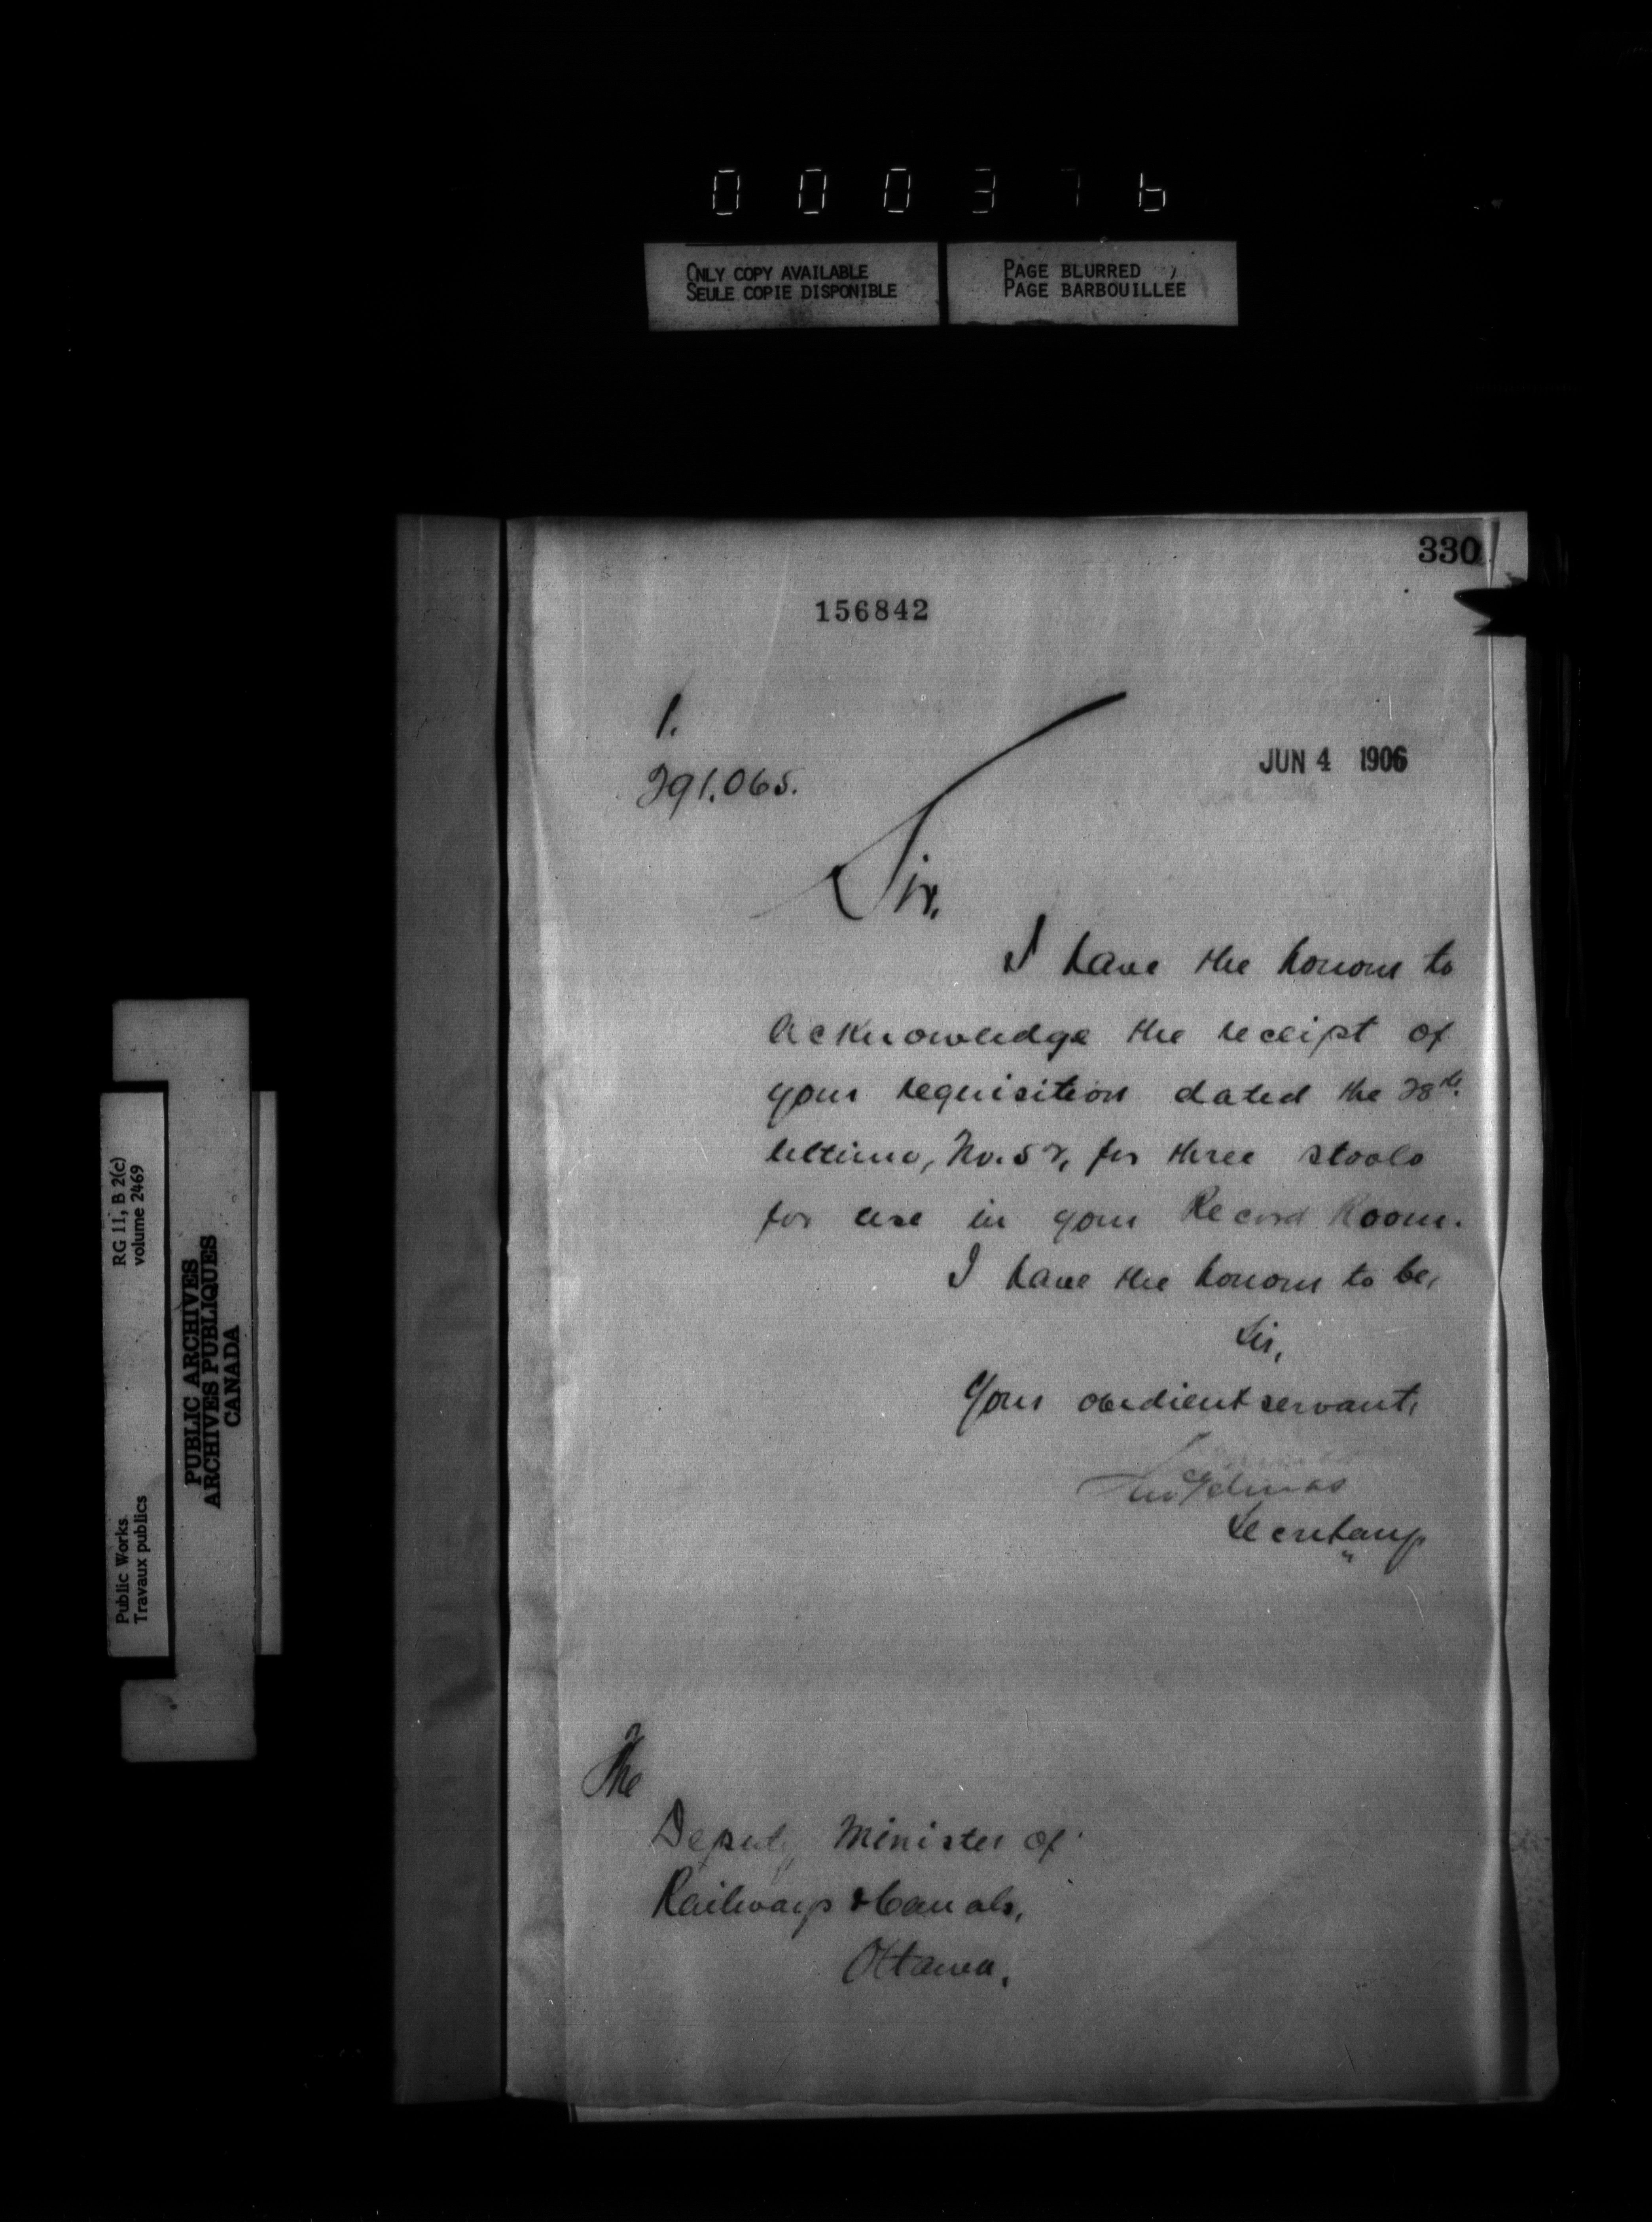 000376
ONLY COPY AVAILABLE
SEULE COPIE DISPONIBLE
PAGE BLURRED
PAGE BARBOUILLEE
330
156842
1.
291.065.
JUN 4 1906
Sir,
I have the honour to
acknowledge the receipt of
your requisition dated the 28th
ultimo, No. 52, for three stools
for use in your Record Room.
I have the honour to be,
Sir,
Your obedient servant,
Secretary
The
Deputy Minister of
Railways & Canals,
Ottawa.
RG 11, B 2(c)
volume 2469
PUBLIC ARCHIVES
ARCHIVES PUBLIQUES
CANADA
Public Works
Travaux publics